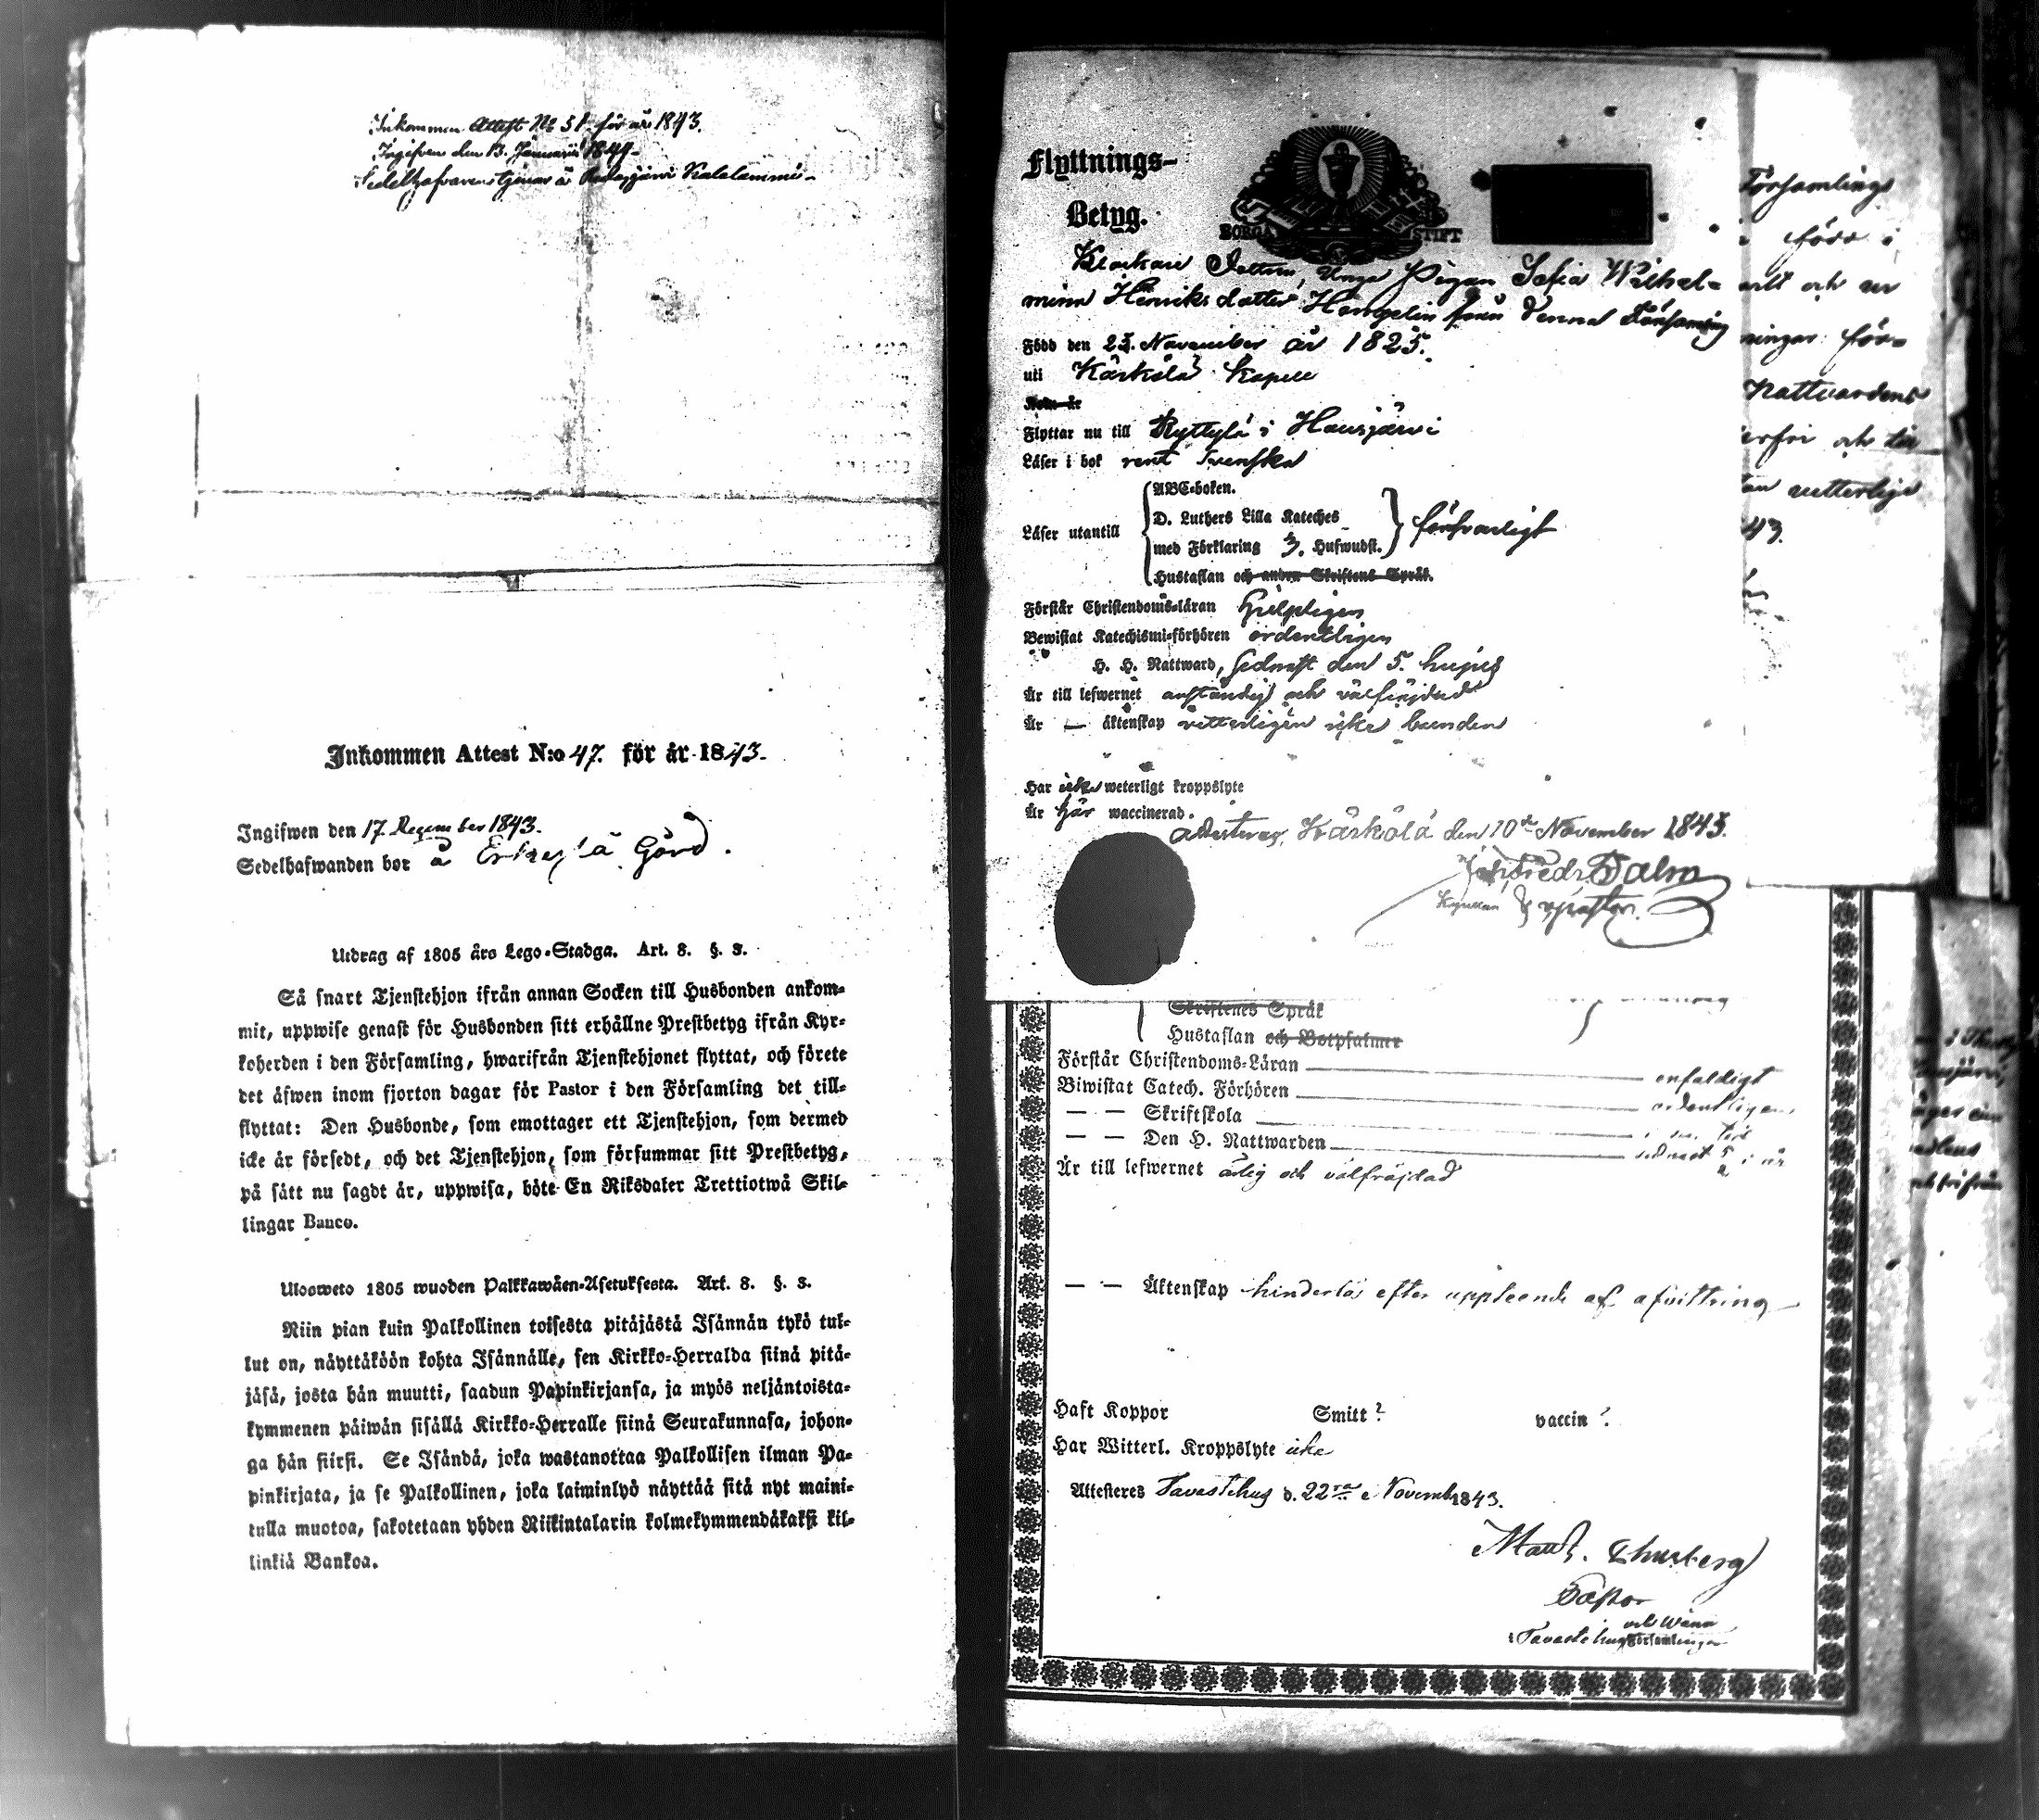 Inkommen Attest No 51 för år 1843.
Ingifven den 13. Januarii 1844
Sedelhafvaren tjenar å
Inkommen Attest N:o 47. för år 1843.
Ingifwen den 17 December 1843.
Sedelhafwanden bor å Erkylä Gård.
Utdrag af 1805 års Lego-Stadga. Art. 8. §. 3.
Så snart Tjenstehjon ifrån annan Socken till Husbonden ankom-
mit, uppwise genast för Husbonden sitt erhållne Prestbetyg ifrån Kyr-
koherden i den Församling, hwarifrån Tjenstehjonet flyttat, och förete
det äfwen inom fjorton dagar för Pastor i den Församling det till-
flyttat: Den Husbonde, som emottager ett Tjenstehjon, som dermed
icke är försedt, och det Tjenstehjon, som försummar sitt Prestbetyg,
på sätt nu sagdt är, uppwisa, böte En Riksdaler Trettiotwå Skil-
lingar Banco.
Ulosweto 1805 wuoden Palkkawäen-Asetuksesta. Art. 8. §. 3.
Niin pian kuin Palkollinen toisesta pitäjästä Isännän tykö tul-
lut on, näyttäköön kohta Isännälle, sen Kirkko-Herralda siinä pitä-
jäsä, josta hän muutti, saadun Papinkirjansa, ja myös neljäntoista-
kymmenen päiwän sisällä Kirkko-Herralle siinä Seurakunnasa, johon-
ga hän siirsi. Se Isändä, joka wastanottaa Palkollisen ilman Pa-
pinkirjata, ja se Palkollinen, joka laiminlyö näyttää sitä nyt maini-
tulla muotoa, sakotetaan yhden Riikintalarin kolmekymmendäkaksi kil-
linkiä Bankoa.
Flyttnings-
Betyg.
BORGÅ STIFT
Klockare Dottren, Unga Pigan Sofia Wilhel-
mina Henriks dotter från denna Församling
Född den 23. November år 1825.
uti Kärkölä Kapell
Kom år
Flyttar nu till Ryttylä i Hausjärvi
Läser i bok rent Svenska
Läser utantill
ABC-boken.
D. Luthers Lilla Kateches
med Förklaring 3. Hufwudst.
försvarligt
Hustaflan och andra Skriftens Språk.
Förstår Christendoms-läran hjelpligen
Bewistat Katechismi-förhören ordentligen
H. H. Nattward, sednast den 5. hujus
Är till lefwernet anständig och välfräjdad
Är — äktenskap vitterligen icke bunden
Har icke weterligt kroppslyte
Är här waccinerad.
Attesteras, Kärkölä den 10de November 1843.
Församlings
född i
och
ningar för-
Nattvardens
och
43.
Skriftenes Språk
Hustaflan och Botpsalmer
Förstår Christendoms-Läran enfaldigt
Biwistat Catech. Förhören ordentligen
— — Skriftskola i sin tid
— — Den H. Nattwarden sednast i år
Är till lefwernet ärlig och välfräjdad
— — Äktenskap hinderlös efter uppteende af afvittring
Haft Koppor Smitt? vaccin?
Har Witterl. Kroppslyte icke
Attesteres Tavastehus d. 22ra Novemb 1843.
Pastor
och Wånå
i Tavastehus Församlingar